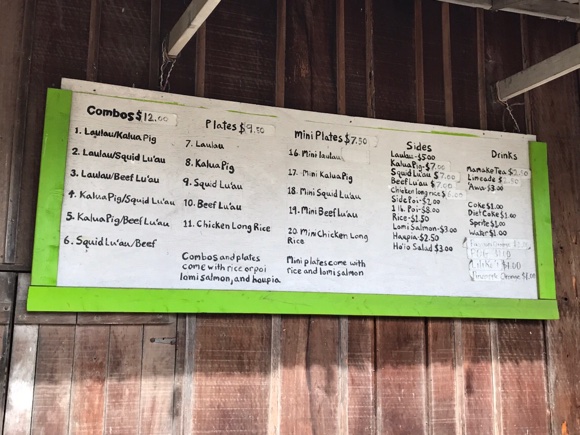 Combos $12.00
1. Laulau/Kalua Pig
2. Laulau/Squid Lu'au
3. Laulau/Beef Lu'au
4. Kalua Pig/Squid Lu'au
5. Kalua Pig/Beef Lu'au
6. Squid Lu'au/Beef
Plates $9.50
7. Laulau
8. Kalua Pig
9. Squid Lu'au
10. Beef Lu'au
11. Chicken Long Rice
Combos and plates
come with rice or poi
lomi salmon, and haupia
Mini Plates $7.50
16. Mini laulau
17. Mini Kalua Pig
18. Mini Squid Lu'au
19. Mini Beef lu'au
20 Mini Chicken Long
Rice
Mini plates come with
rice and lomi salmon
Sides
Laulau-$5.00
Kalua Pig-$7.00
Squid Lu'au $7.00
Beef Lu'au $7.00
Chicken long rice $6.00
Side Poi-$2.00
1 lb. Poi-$8.00
Rice-$1.50
Lomi Salmon-$3.00
Haupia-$2.50
Ho'io Salad $3.00
Drinks
Mamake Tea $2.50
Limeade $2.50
'Awa-$3.00
Coke $1.00
Diet Coke $1.00
Sprite $1.00
Water $1.00
$4.00
Orange $1.00